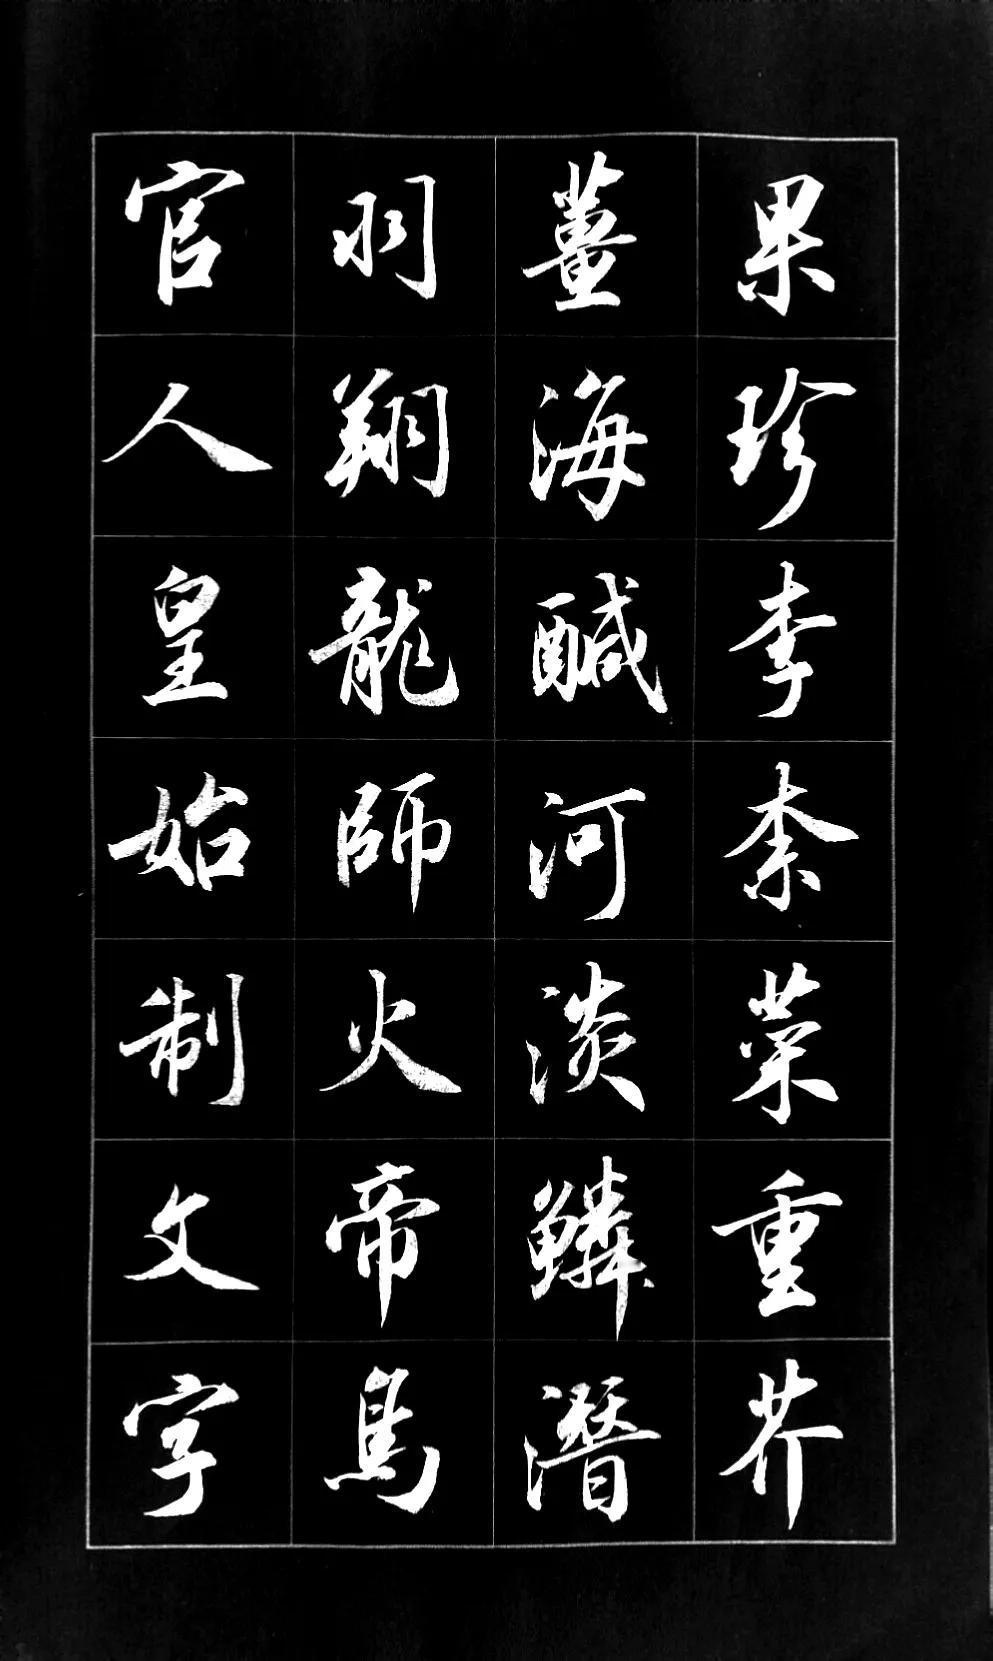 果珍李柰菜重芥
薑海醎河淡鱗潛
羽翔龍師火帝鳥
官人皇始制文字